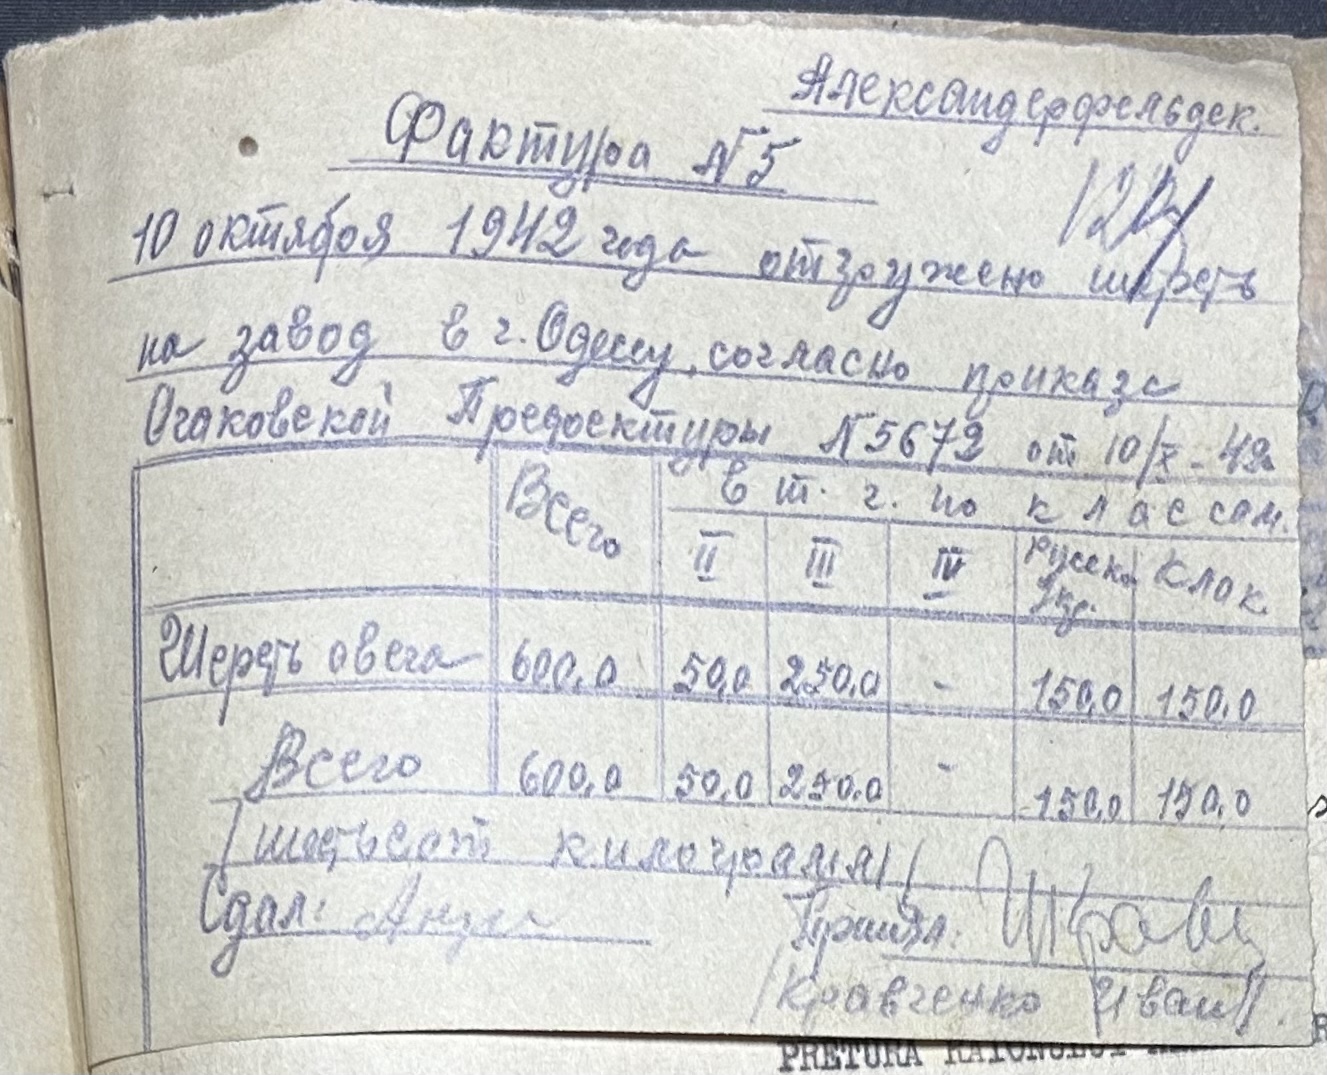 Александерфельдек.
Фактура N5
124
10 октября 1942 года отгружено шерсть
на завод в г. Одессу, согласно приказа
Очаковской Префектуры N5672 от 10/X-42
Всего в т. г. по классам.
II III IV Русск. Клок.
Шерсть овеча 600,0 50,0 250,0 - 150,0 150,0
Всего 600,0 50,0 250,0 - 150,0 150,0
/шестьсот килограмм/
Сдал:
Принял:
/Кравченко Иван/.
PRETURA RAIONULUI